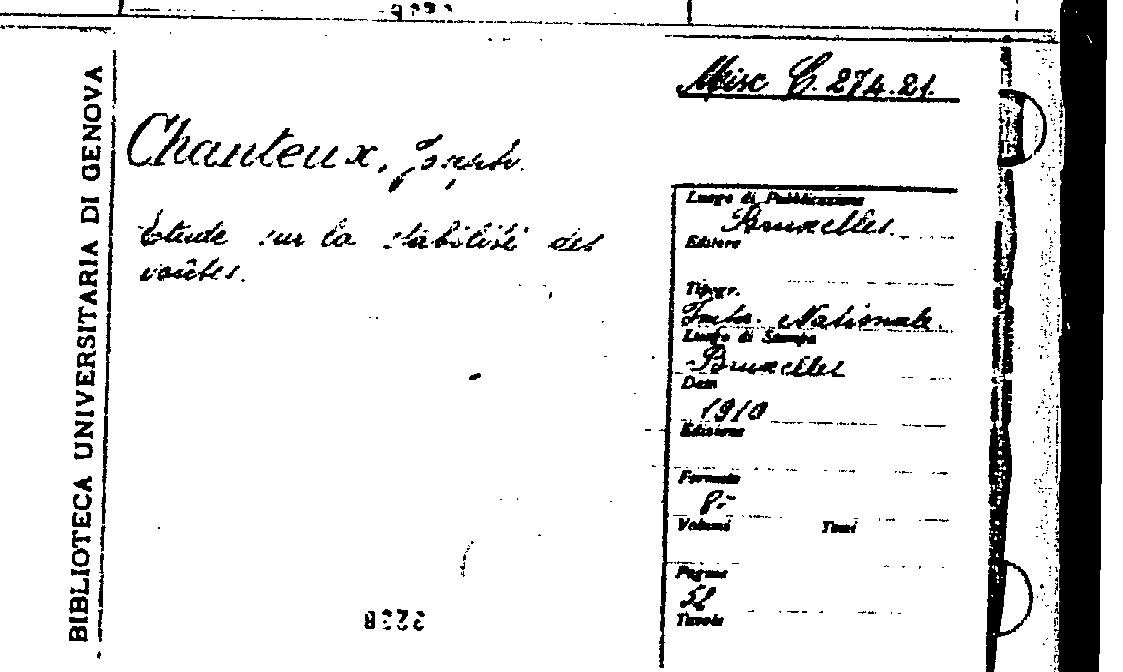 Misc C. 274.21.
BIBLIOTECA UNIVERSITARIA DI GENOVA
Chanteux, Joseph.
Etude sur la stabilité des
voûtes.
Luogo di Pubblicazione
Bruxelles.
Editore
Tipogr.
Impr. Nationale.
Luogo di Stampa
Bruxelles
Data
1910
Edizione
Formato
8º
Volumi Tomi
Pagine
Tavole